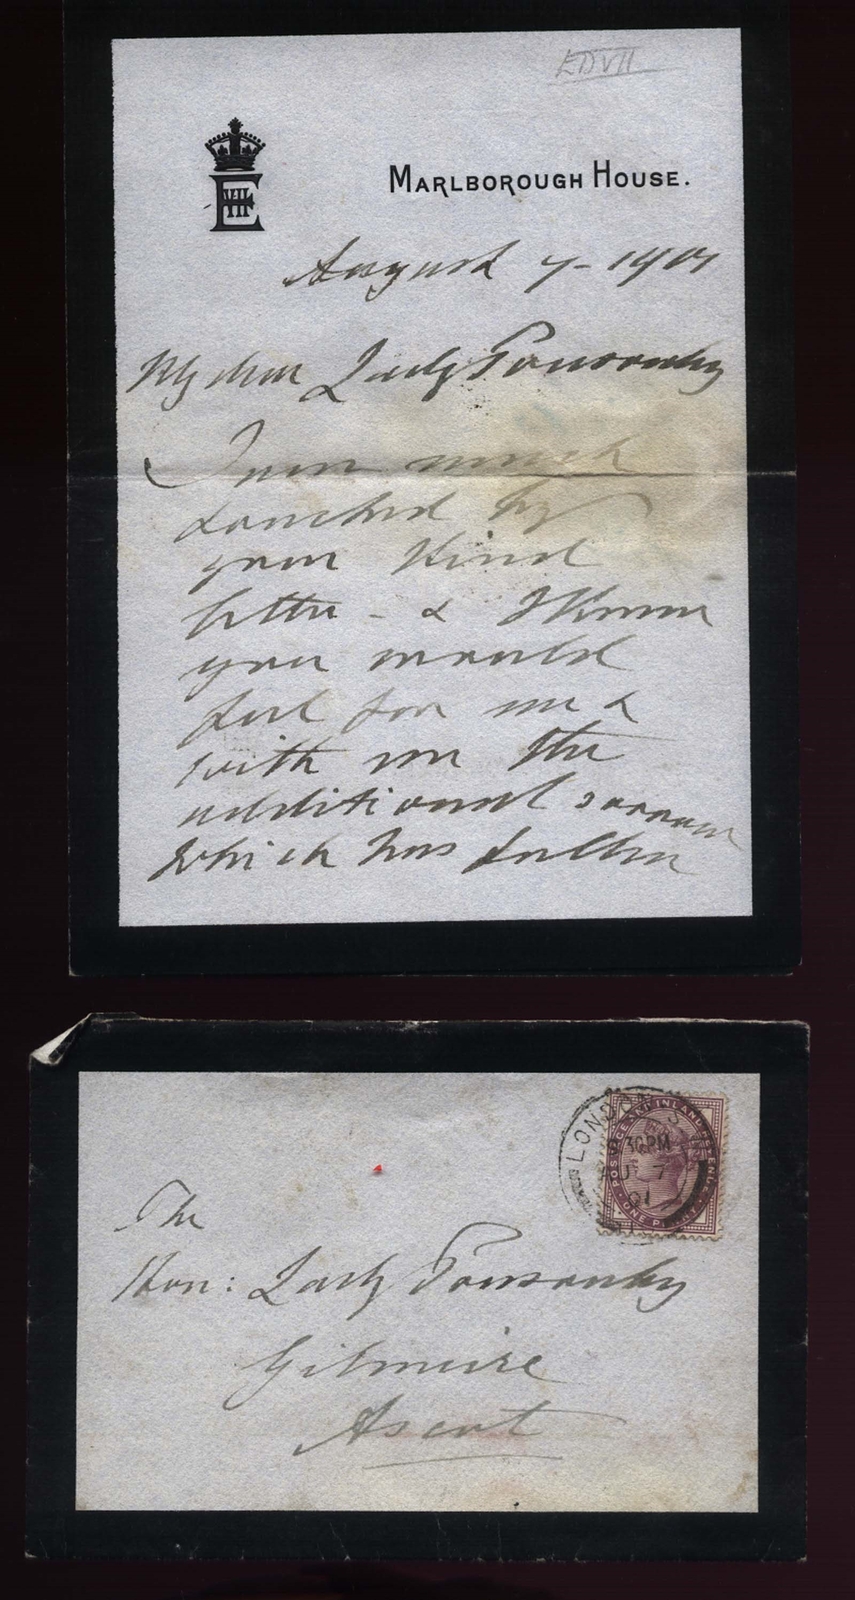 EDVII
E VII
MARLBOROUGH HOUSE.
August 7 - 1901
My dear Lady Ponsonby
I am much
touched by
your kind
letter - & I know
you would
feel for me &
with me the
additional sorrow
which has fallen
LONDON S
30PM
7
01
POSTAGE AND INLAND REVENUE
ONE PENNY
The
Hon: Lady Ponsonby
Gilmuire
Ascot